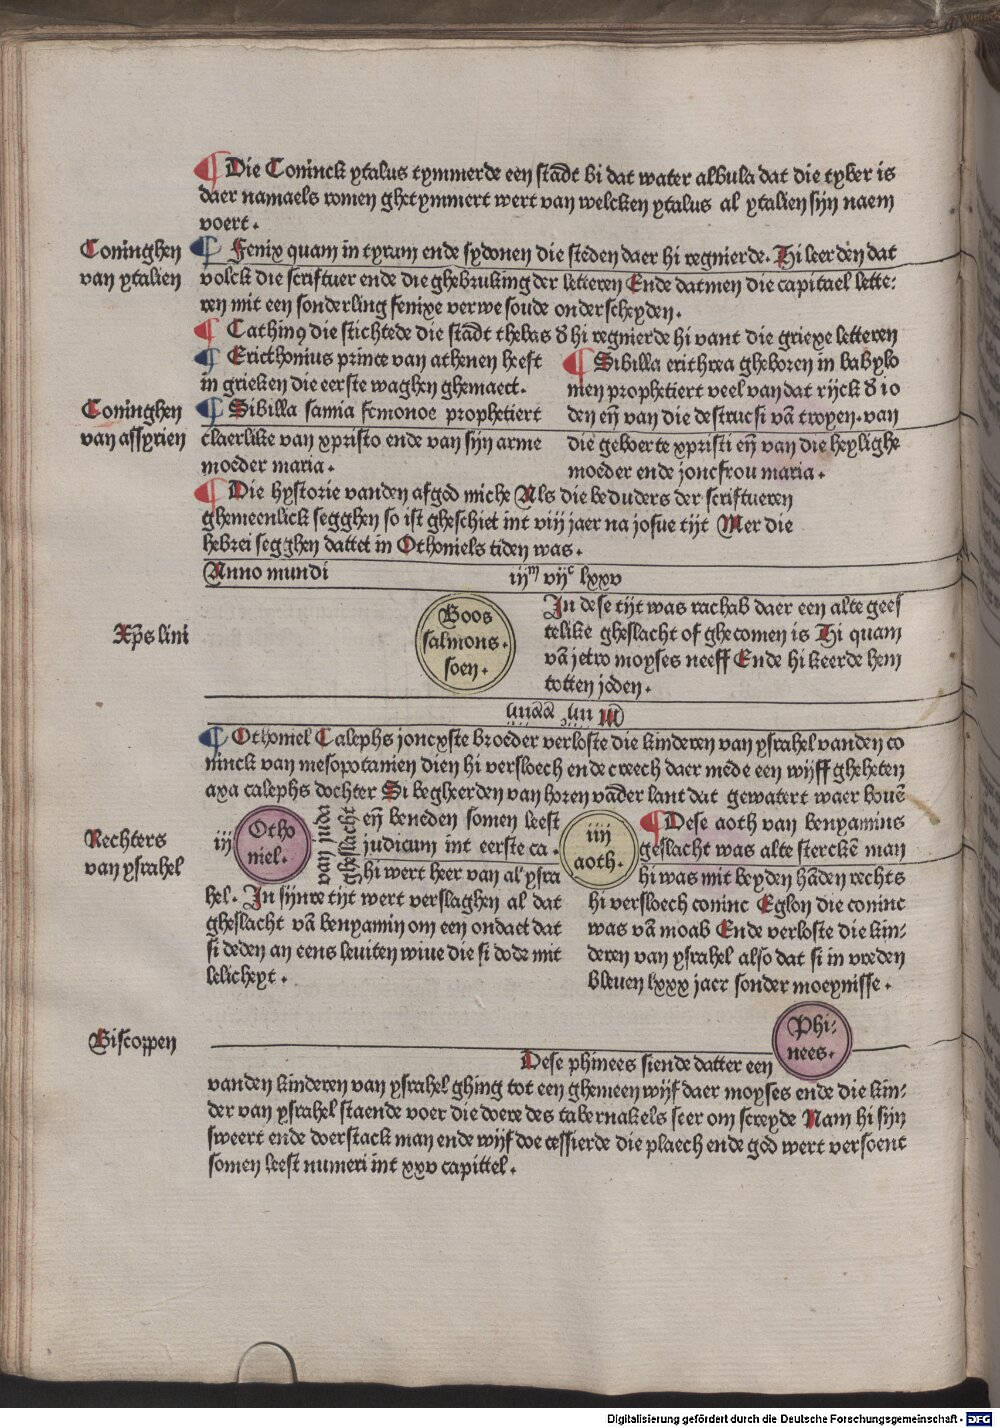 ¶ Die Coninck ytalus tymmerde een stadt bi dat water albula dat die tyber is
daer namaels romen ghetymmert wert van welcken ytalus al ytalien sijn naem
voert.
Coninghen
van ytalien
¶ Fenix quam in tyrum ende sydonen die steden daer hi regnierde. Hi leerden dat
volck die scriftuer ende die ghebruking der letteren Ende datmen die capitael lette:
ren mit een sonderling fenixe verwe soude onderscheyden.
¶ Cathinꝰ die stichtede die stadt thebas đ hi regnierde hi vant die griexe letteren
¶ Ericthonius prince van athenen heeft
in grieken die eerste waghen ghemaect.
Coninghen
van assyrien
¶ Sibilla samia femonoe prophetiert
claerlike van xpristo ende van sijn arme
moeder maria.
¶ Sibilla erithrea gheboren in babylo
nien prophetiert veel van dat rijck đ io
den eñ van die destrucsi vā troyen. van
die geboerte xpristi eñ van die heylighe
moeder ende joncfrou maria.
¶ Die hystorie vanden afgod miche Als die beduders der scriftueren
ghemeenlick segghen so ist gheschiet int viij jaer na josue tijt Mer die
hebrei segghen dattet in Othoniels tiden was.
Anno mundi iijᵐ vijᶜ lxxv
Xp̄s lini
Boos
salmons.
soen.
In dese tijt was rachab daer een alte gees
telike gheslacht of ghecomen is Hi quam
vā jetro moyses neeff Ende hi keerde hem
totten joden.
¶ Othoniel Calephs joncxste broeder verloste die kinderen van ysrahel vanden co
ninck van mesopotanien dien hi versloech ende creech daer mede een wijff gheheten
axa calephs dochter Si begheerden van horen vāder lant dat gewatert waer bouē
Rechters
van ysrahel
iij
Otho
niel.
van juda
gheslacht
eñ beneden somen leest
judicum int eerste ca.
hi wert heer van al ysra
hel. In sijnre tijt wert verslaghen al dat
gheslacht vā benyamin om een ondaet dat
si deden an eens leuiten wiue die si dode mit
lelicheyt.
iiij
aoth.
¶ Dese aoth van benyamins
geslacht was alte sterckē man
hi was mit beyden hāden rechts
hi versloech coninc Eglon die coninc
was vā moab Ende verloste die kin:
deren van ysrahel also dat si in vreden
bleuen lxxx jaer sonder moeynisse.
Biscoppen
Phi:
nees.
Dese phinees siende datter een
vanden kinderen van ysrahel ghing tot een ghemeen wijf daer moyses ende die kin:
der van ysrahel staende voer die doere des tabernakels seer om screyde Nam hi sijn
sweert ende doerstack man ende wijf doe cessierde die plaech ende god wert versoent
somen leest numeri int xxv capittel.
Digitalisierung gefördert durch die Deutsche Forschungsgemeinschaft - DFG